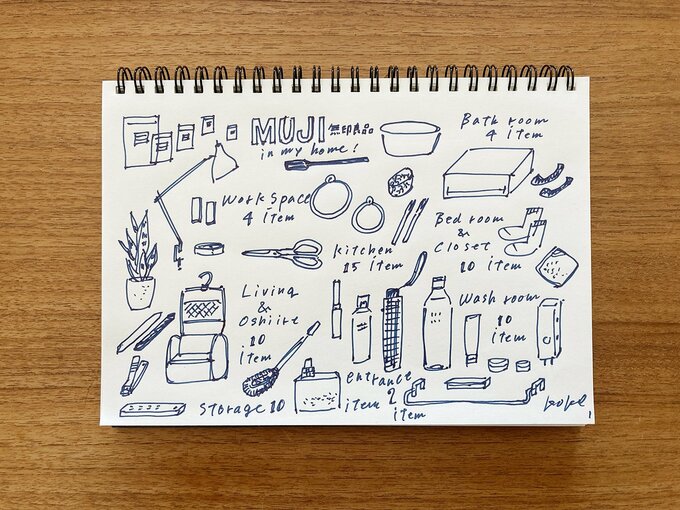 MUJI 無印良品
in my home!
Bath room
4 item
Work Space
4 item
Kitchen
15 item
Bed room
&
Closet
10 item
Living
&
Oshiire
10
item
Wash room
10
item
entrance
2
item
Storage 10
item